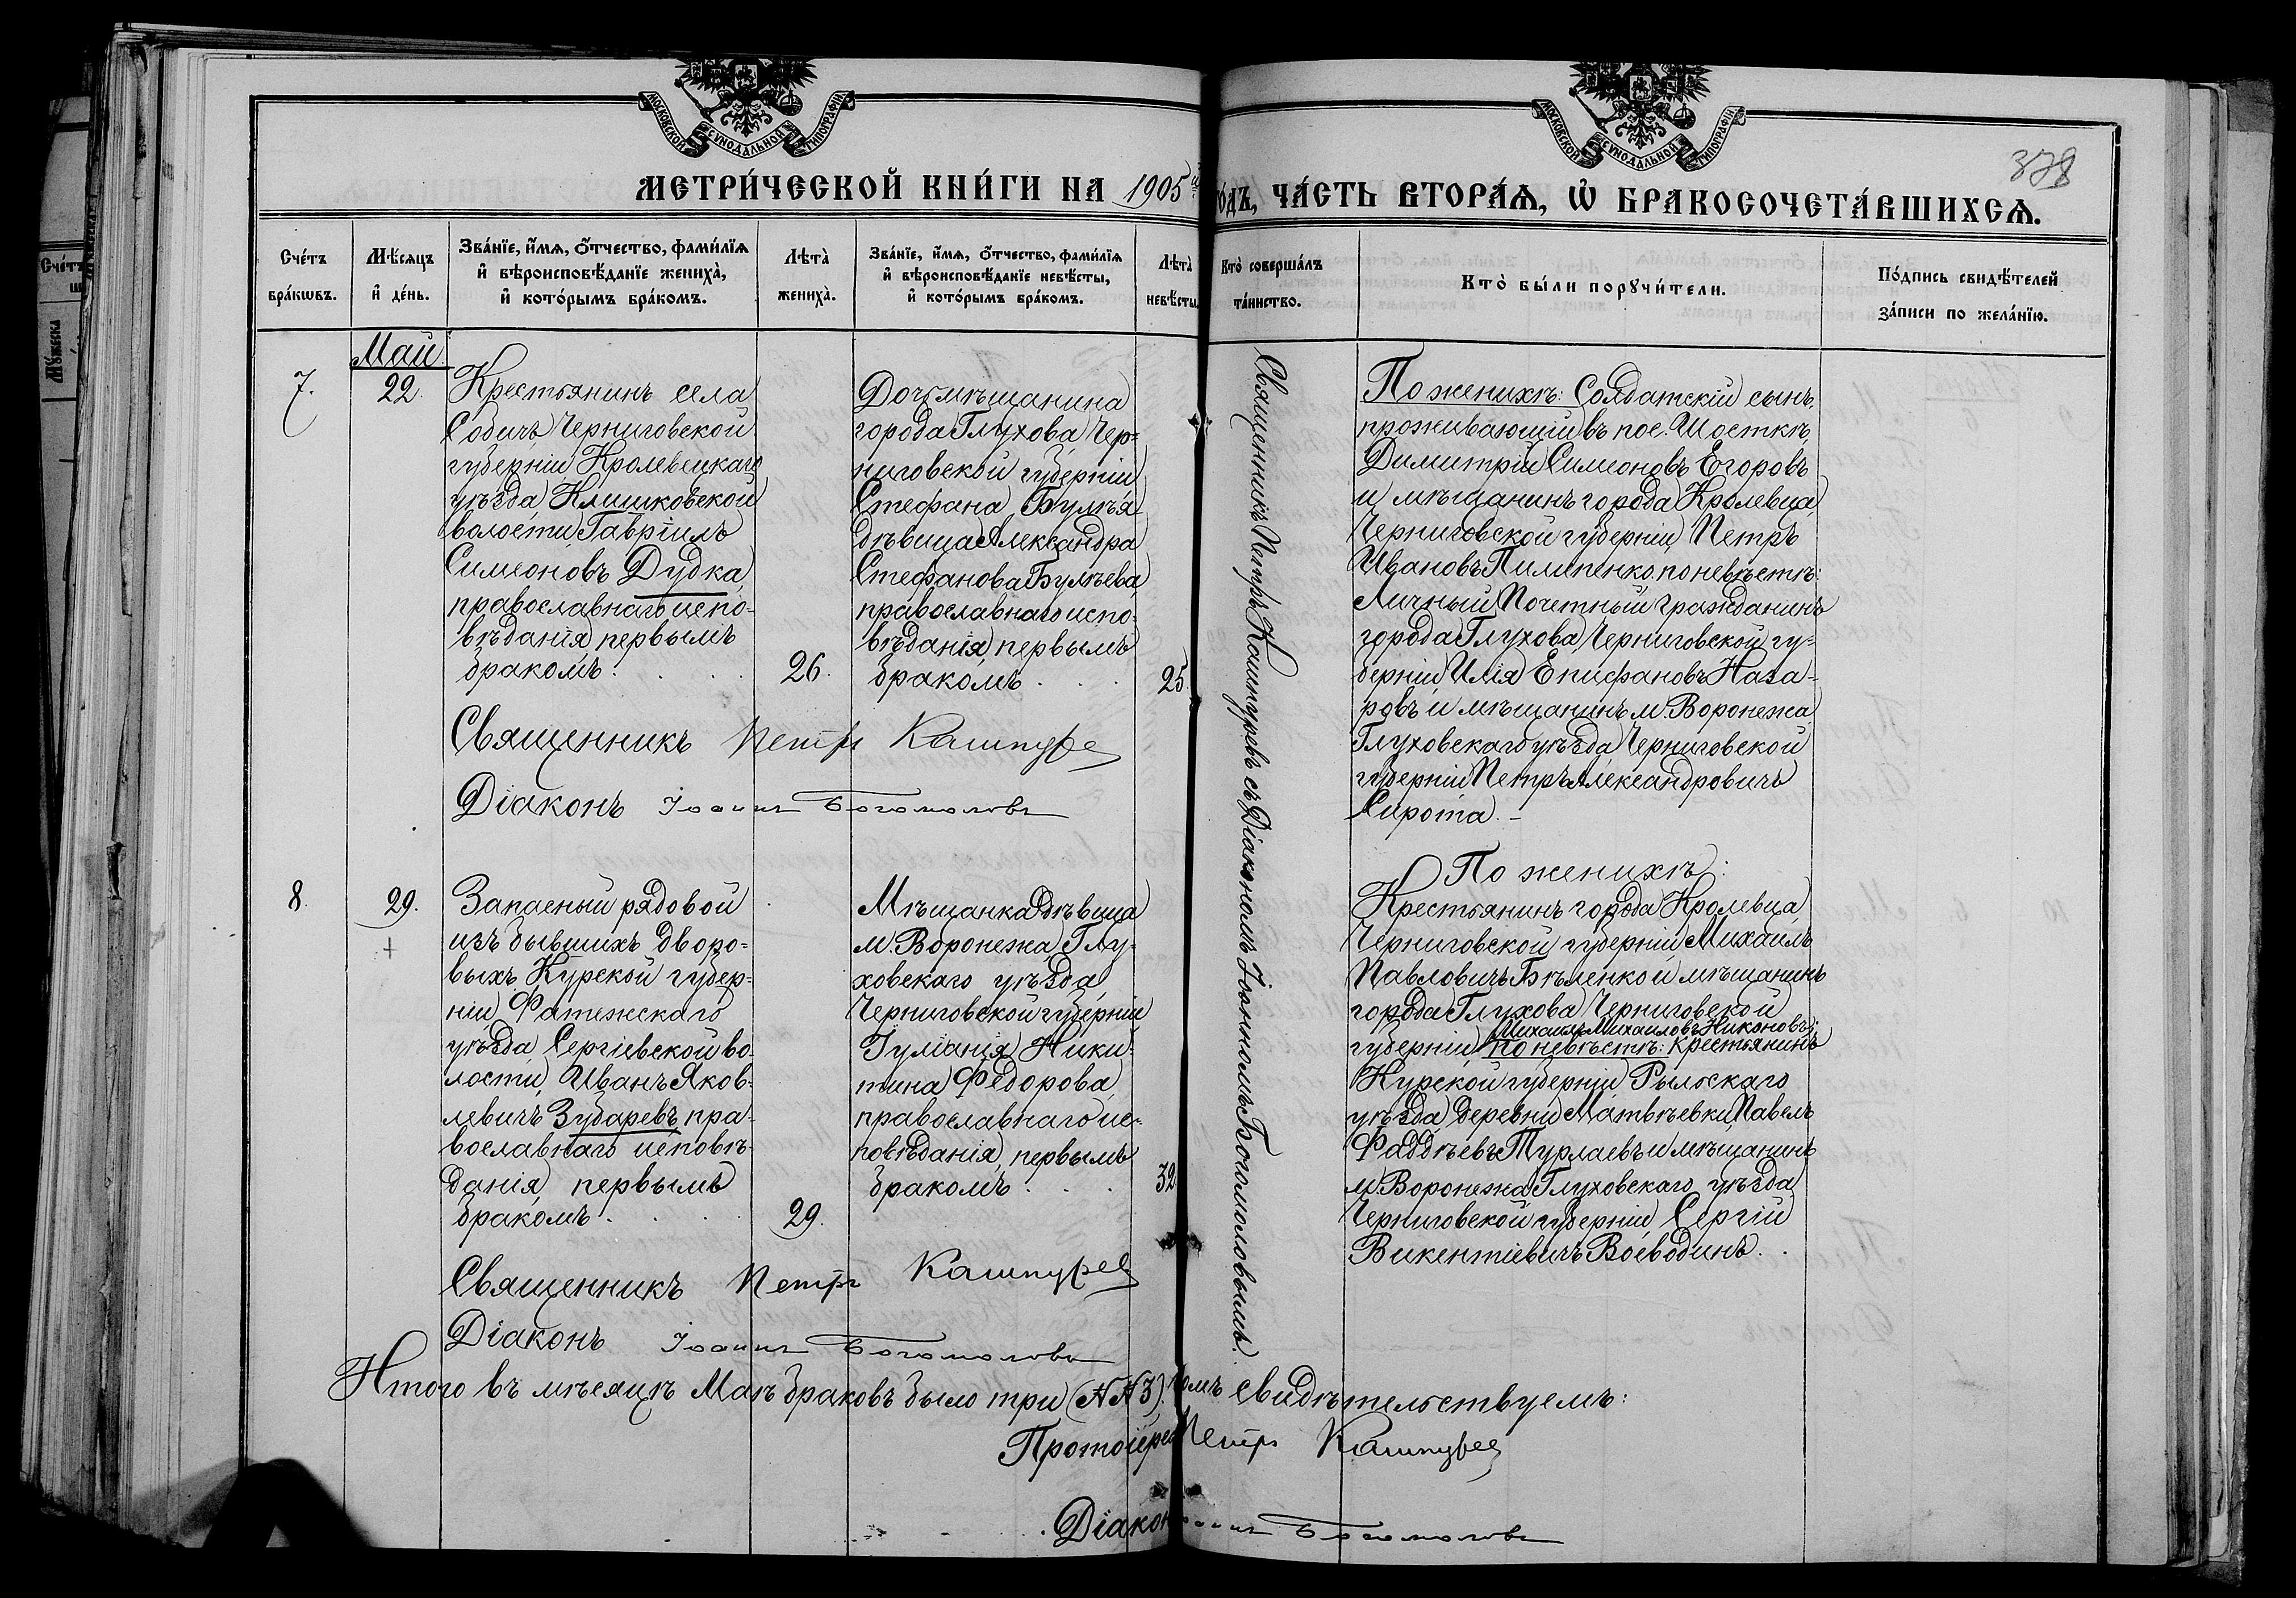 МОСКОВСКОЙ СУНОДАЛЬНОЙ ТИПОГРАФІИ
МОСКОВСКОЙ СУНОДАЛЬНОЙ ТИПОГРАФІИ
378
МЕТРИ́ЧЕСКОЙ КНИ́ГИ НА 1905й го́дъ, ЧА́СТЬ ВТОРА́Ѧ, Ѡ҆ БРАКОСОЧЕТА́ВШИХСѦ.
Сче́тъ бра́кѡвъ.
Мѣ́сѧцъ и҆ де́нь.
Зва́нїе, и҆́мѧ, ѻ҆́тчество, фами́лїѧ и҆ вѣроисповѣ́данїе жениха̀, и҆ кото́рымъ бра́комъ.
Лѣта̀ жениха̀.
Зва́нїе, и҆́мѧ, ѻ҆́тчество, фами́лїѧ и҆ вѣроисповѣ́данїе невѣ́сты, и҆ кото́рымъ бра́комъ.
Лѣта̀ невѣ́сты.
Кто̀ соверша́лъ та́инство.
Кто̀ бы́ли порꙋчи́тели.
По́дпись свидѣ́телей за́писи по жела́нїю.
Май
7.
22.
Крестьянинъ села
Собичъ Черниговской
губерніи Кролевецкаго
уѣзда Клишковской
волости Гавріилъ
Симеоновъ Дудка,
православнаго испо-
вѣданія, первымъ
бракомъ.
26.
Дочь мѣщанина
города Глухова, Чер-
ниговской губерніи
Стефана Булѣя
дѣвица Александра
Стефанова Булѣева,
православнаго испо-
вѣданія, первымъ
бракомъ
25.
Священникъ Петръ Кашпуревъ съ Діакономъ Іоанномъ Богомоловымъ.
По женихѣ: Солдатскій сынъ,
проживающій въ пос. Шосткѣ,
Димитрій Симеоновъ Егоровъ
и мѣщанинъ города Кролевца,
Черниговской губерніи Петръ
Ивановъ Пилипенко. по невѣстѣ:
Личный Почетный гражданинъ
города Глухова, Черниговской гу-
берніи, Илія Епифановъ Наза-
ровъ и мѣщанинъ м. Воронежа
Глуховскаго уѣзда, Черниговской
губерніи Петръ Александровичъ
Сирота. –
Священникъ Петръ Кашпурев
Діаконъ Іоаннъ Богомоловъ
8.
29.
Запасный рядовой
изъ бывшихъ дворо-
выхъ, Курской губер-
ніи, Фатежскаго
уѣзда, Сергіевской во-
лости, Иванъ Яков-
левичъ Зубаревъ, пра-
вославнаго исповѣ-
данія, первымъ
бракомъ.
29.
Мѣщанка дѣвица
м. Воронежа, Глу-
ховскаго уѣзда,
Черниговской губерніи
Іуліанія Ники-
тина Федорова,
православнаго ис-
повѣданія, первымъ
бракомъ
32
По женихѣ:
Крестьянинъ города Кролевца,
Черниговской губерніи, Михаилъ
Павловичъ Бѣленко и мѣщанинъ
города Глухова Черниговской
Михаилъ Михаиловъ Никоновъ;
губерніи, по невѣстѣ: крестьянинъ
Курской губерніи Рыльскаго
уѣзда, деревни Матвѣевки, Павелъ
Фаддѣевъ Турлаевъ и мѣщанинъ
м. Воронежа, Глуховскаго уѣзда
Черниговской губерніи Сергій
Викентіевичъ Воеводинъ.
Священникъ Петръ Кашпурев
Діаконъ Іоаннъ Богомоловъ
Итого въ мѣсяцѣ Маѣ браковъ было три (№№ 3). томъ свидѣтельствуемъ:
Протоіерей Петръ Кашпурев
Діаконъ Іоаннъ Богомоловъ